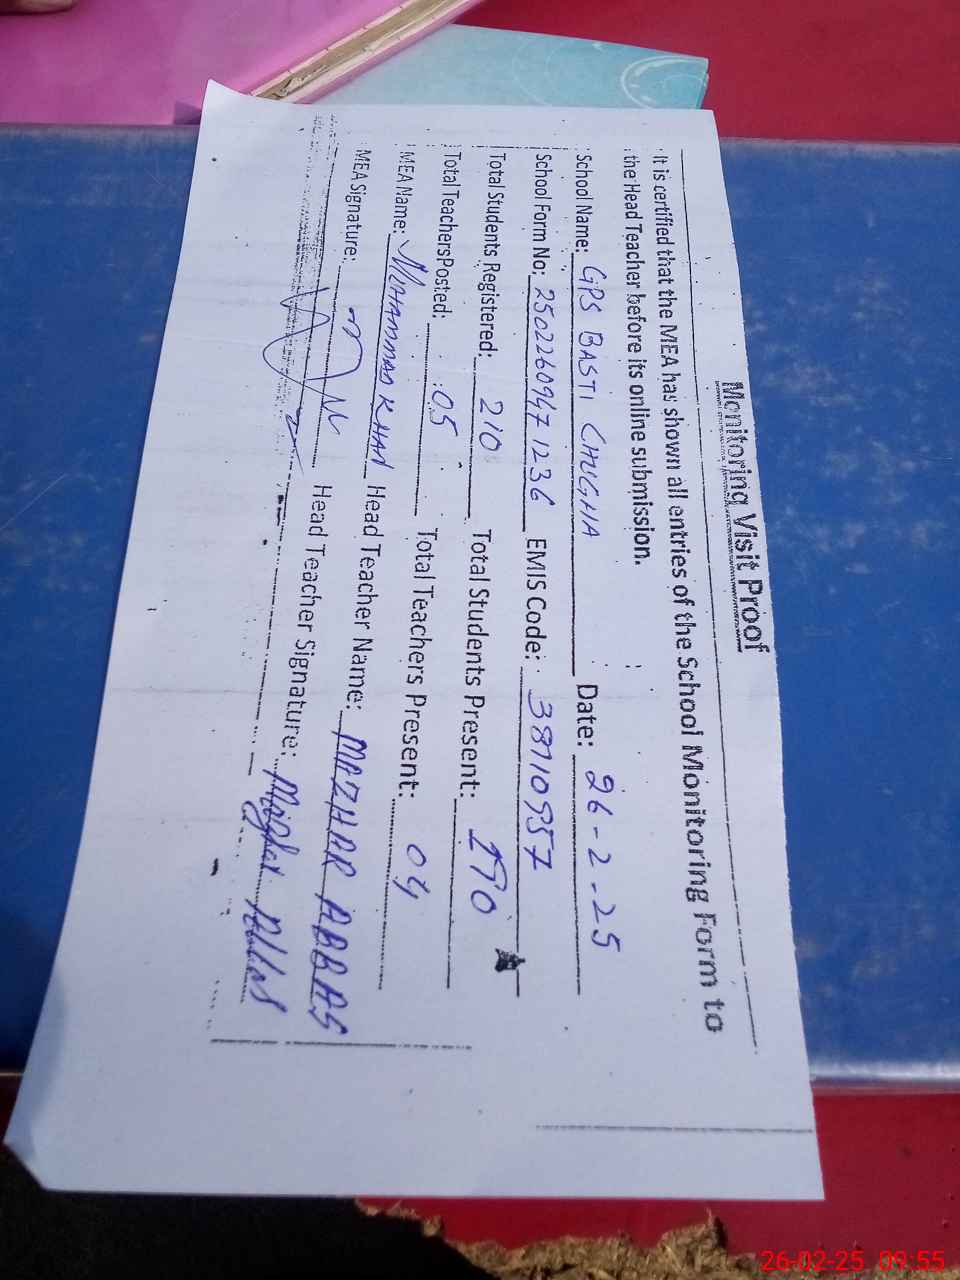 Monitoring Visit Proof
It is certified that the MEA has shown all entries of the School Monitoring Form to
the Head Teacher before its online submission.
School Name: GPS BASTI CHUGHA Date: 26-2-25
School Form No: 25022609471236 EMIS Code: 38710957
Total Students Registered: 210 Total Students Present: 190
Total TeachersPosted: 05 Total Teachers Present: 04
MEA Name: MUHAMMAD KHAN Head Teacher Name: MAZHAR ABBAS
MEA Signature: Head Teacher Signature: Mazhar Abbas
26-02-25 09:55